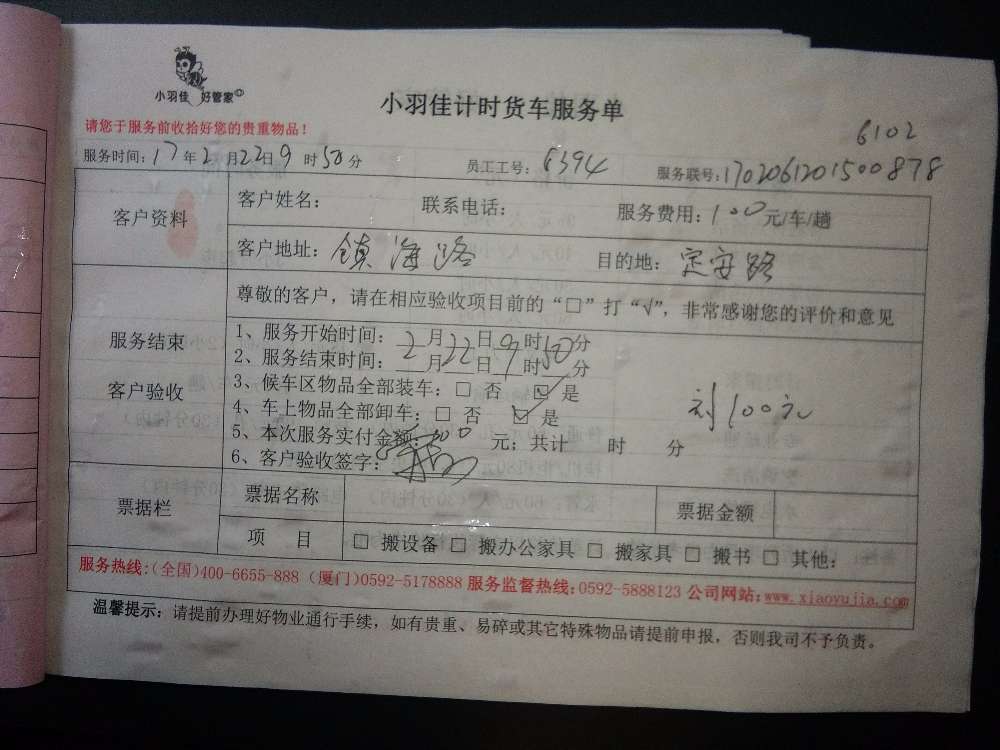 小羽佳 好管家
小羽佳计时货车服务单
请您于服务前收拾好您的贵重物品！
6102
服务时间：17年2月22日9时50分 员工工号：6394 服务联号：1702061201500878
客户资料
客户姓名： 联系电话： 服务费用：100元/车/趟
客户地址：镇海路 目的地：定安路
服务结束
客户验收
尊敬的客户，请在相应验收项目前的“□”打“√”，非常感谢您的评价和意见
1、服务开始时间：2月22日9时50分
2、服务结束时间： 月 日 时 分
3、候车区物品全部装车：□ 否 ☑ 是
4、车上物品全部卸车：□ 否 ☑ 是
5、本次服务实付金额：100元；共计 时 分
6、客户验收签字：
100元
票据栏
票据名称 票据金额
项 目 □ 搬设备 □ 搬办公家具 □ 搬家具 □ 搬书 □ 其他：
服务热线：(全国)400-6655-888 (厦门)0592-5178888 服务监督热线：0592-5888123 公司网站：www.xiaoyujia.com
温馨提示：请提前办理好物业通行手续，如有贵重、易碎或其它特殊物品请提前申报，否则我司不予负责。